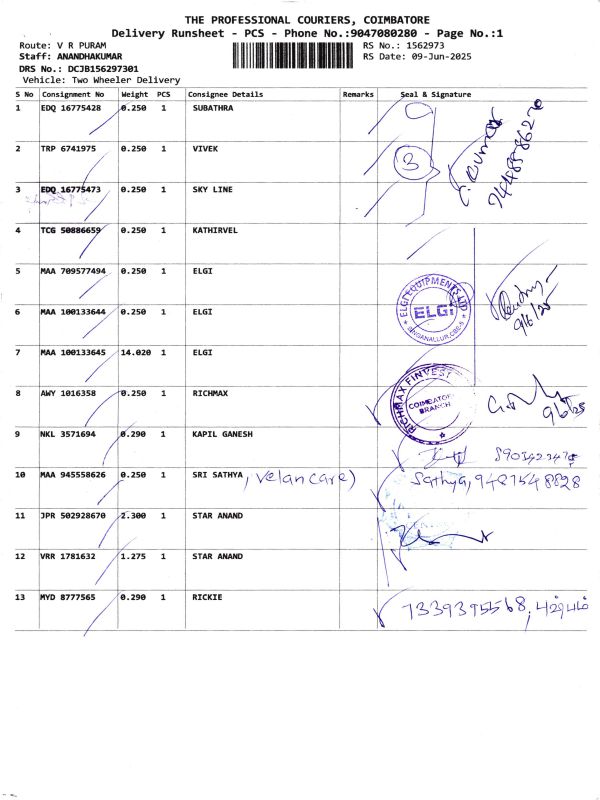 THE PROFESSIONAL COURIERS, COIMBATORE
Delivery Runsheet - PCS - Phone No.:9047080280 - Page No.:1
Route: V R PURAM
RS No.: 1562973
Staff: ANANDHAKUMAR
RS Date: 09-Jun-2025
DRS No.: DCJB156297301
Vehicle: Two Wheeler Delivery
S No Consignment No Weight PCS Consignee Details Remarks Seal & Signature
1 EDQ 16775428 0.250 1 SUBATHRA
2 TRP 6741975 0.250 1 VIVEK
3
3 EDQ 16775473 0.250 1 SKY LINE
4 TCG 50886659 0.250 1 KATHIRVEL
5 MAA 709577494 0.250 1 ELGI
ELGI EQUIPMENTS LTD
6 MAA 100133644 0.250 1 ELGI
ELGI
SINGANALLUR, CBE-5
9/6/25
7 MAA 100133645 14.020 1 ELGI
8 AWY 1016358 0.250 1 RICHMAX
RICHMAX FINVEST
COIMBATORE
BRANCH
9/6/25
9 NKL 3571694 0.290 1 KAPIL GANESH
10 MAA 945558626 0.250 1 SRI SATHYA, velan care) Sathya, 9487548828
11 JPR 502928670 2.300 1 STAR ANAND
12 VRR 1781632 1.275 1 STAR ANAND
13 MYD 8777565 0.290 1 RICKIE 7339395568,